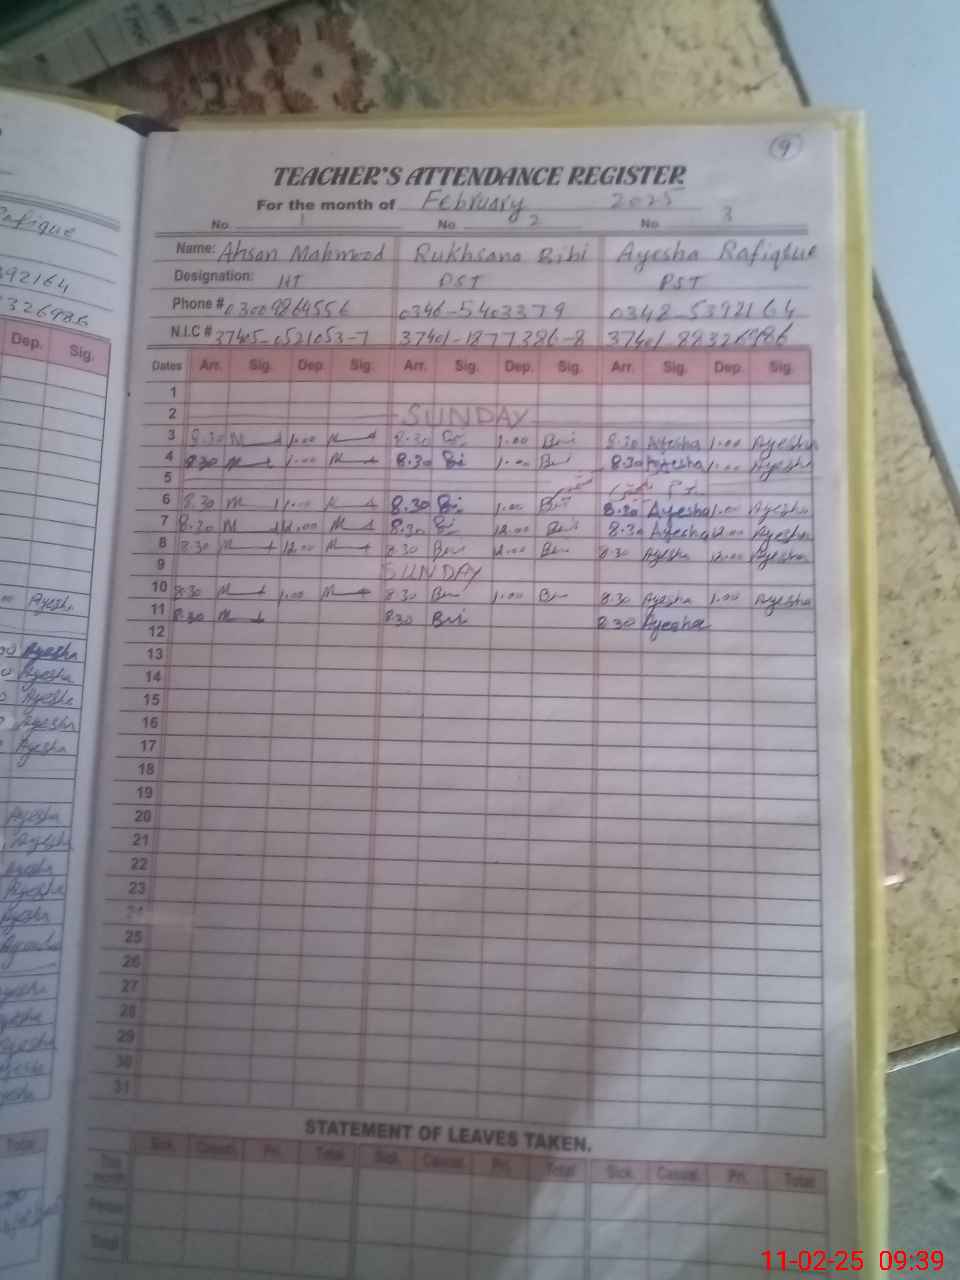 9
TEACHER'S ATTENDANCE REGISTER
For the month of February 2025
No 1 No 2 No 3
Name: Ahsan Mahmood Rukhsana Bibi Ayesha Rafique
Designation: HT PST PST
Phone # 03009864556 0346-5403379 0348-5392164
N.I.C # 37405-0521053-7 37401-1877386-8 37401-88326986
Dates Arr. Sig. Dep. Sig. Arr. Sig. Dep. Sig. Arr. Sig. Dep. Sig.
1
2 SUNDAY
3 8.30 1.00 8.30 1.00 8.30 Ayesha 1.00 Ayesha
4 8.30 1.00 8.30 1.00 8.30 Ayesha 1.00 Ayesha
5
6 8.30 1.00 8.30 1.00 8.30 Ayesha 1.00 Ayesha
7 8.30 12.00 8.30 12.00 8.30 Ayesha 12.00 Ayesha
8 8.30 12.00 8.30 12.00 8.30 Ayesha 12.00 Ayesha
9 SUNDAY
10 8.30 1.00 8.30 1.00 8.30 Ayesha 1.00 Ayesha
11 8.30 8.30 8.30 Ayesha
12
13
14
15
16
17
18
19
20
21
22
23
24
25
26
27
28
29
30
31
STATEMENT OF LEAVES TAKEN.
Sick. Casual. Pri. Total Sick. Casual. Pri. Total Sick. Casual. Pri. Total
This month
Total
Rafique
392164
326986
Dep. Sig.
Ayesha
Ayesha
Ayesha
Ayesha
Ayesha
Ayesha
Ayesha
Ayesha
Ayesha
Ayesha
Ayesha
Ayesha
Ayesha
Ayesha
Total
11-02-25 09:39